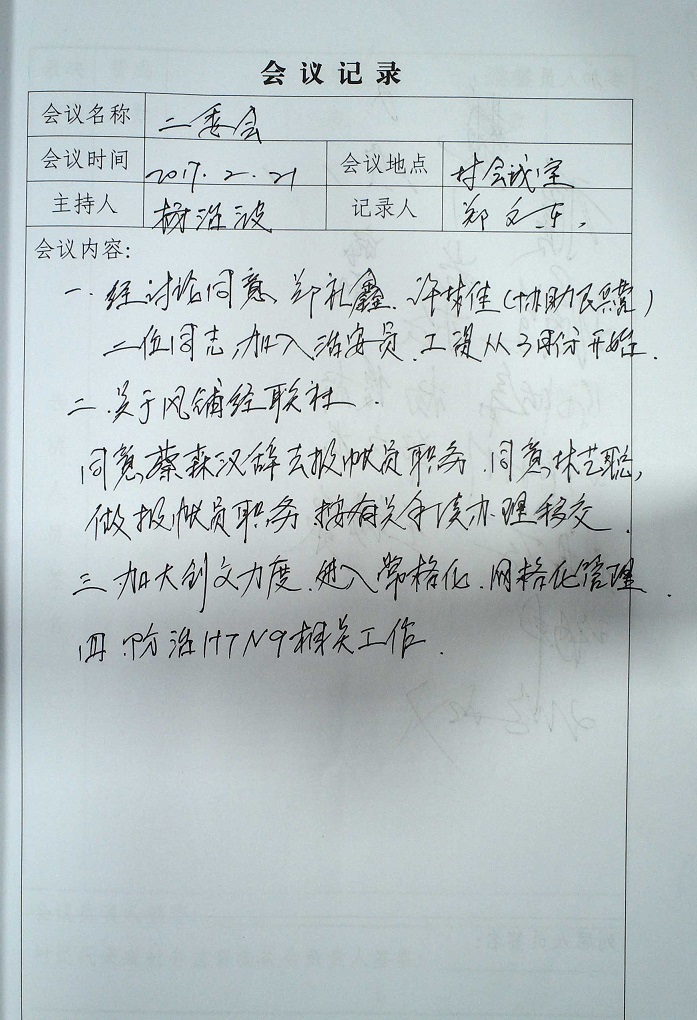 会议记录
会议名称 二委会
会议时间 2017.2.21 会议地点 村会议室
主持人 杨治波 记录人 郑文东
会议内容:
一.经讨论同意郑礼鑫.许梓佳(协助民兵营)
二位同志,加入治安员.工资从3月份开始.
二.关于风铺经联社.
同意蔡森汉辞去报帐员职务.同意林艺聪,
做报帐员职务.按有关手续办理移交.
三.加大创文力度.进入常格化.网格化管理.
四.防治H7N9相关工作.